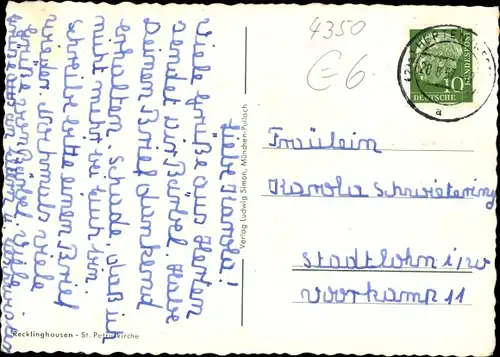 Liebe Karola!
Viele Grüße aus Herten
sendet Dir Bärbel. Habe
Deinen Brief dankend
erhalten. Schade, daß ich
nicht mehr zu Euch bin.
Schreibe bitte einen Brief
wieder. Nochmals viele
Grüße von Bärbel. Viele
Recklinghausen - St. Petruskirche
Verlag Ludwig Simon, München-Pullach
4350
€6
10
DEUTSCHE
BUNDESPOST
a
Fräulein
Karola Schwietering
Stadtlohn i/W
Vorkamp 11